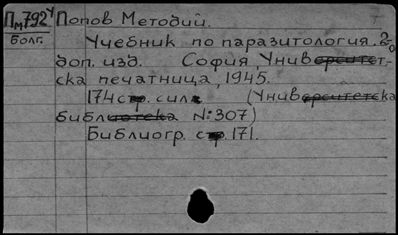 Пм792ч Попов Методий.
болг.
Учебник по паразитология. 2о
доп. изд. София Университет-
ска печатница, 1945.
174 стр. сил. (Университетска
библиотека №: 307)
Библиогр. стр. 171.